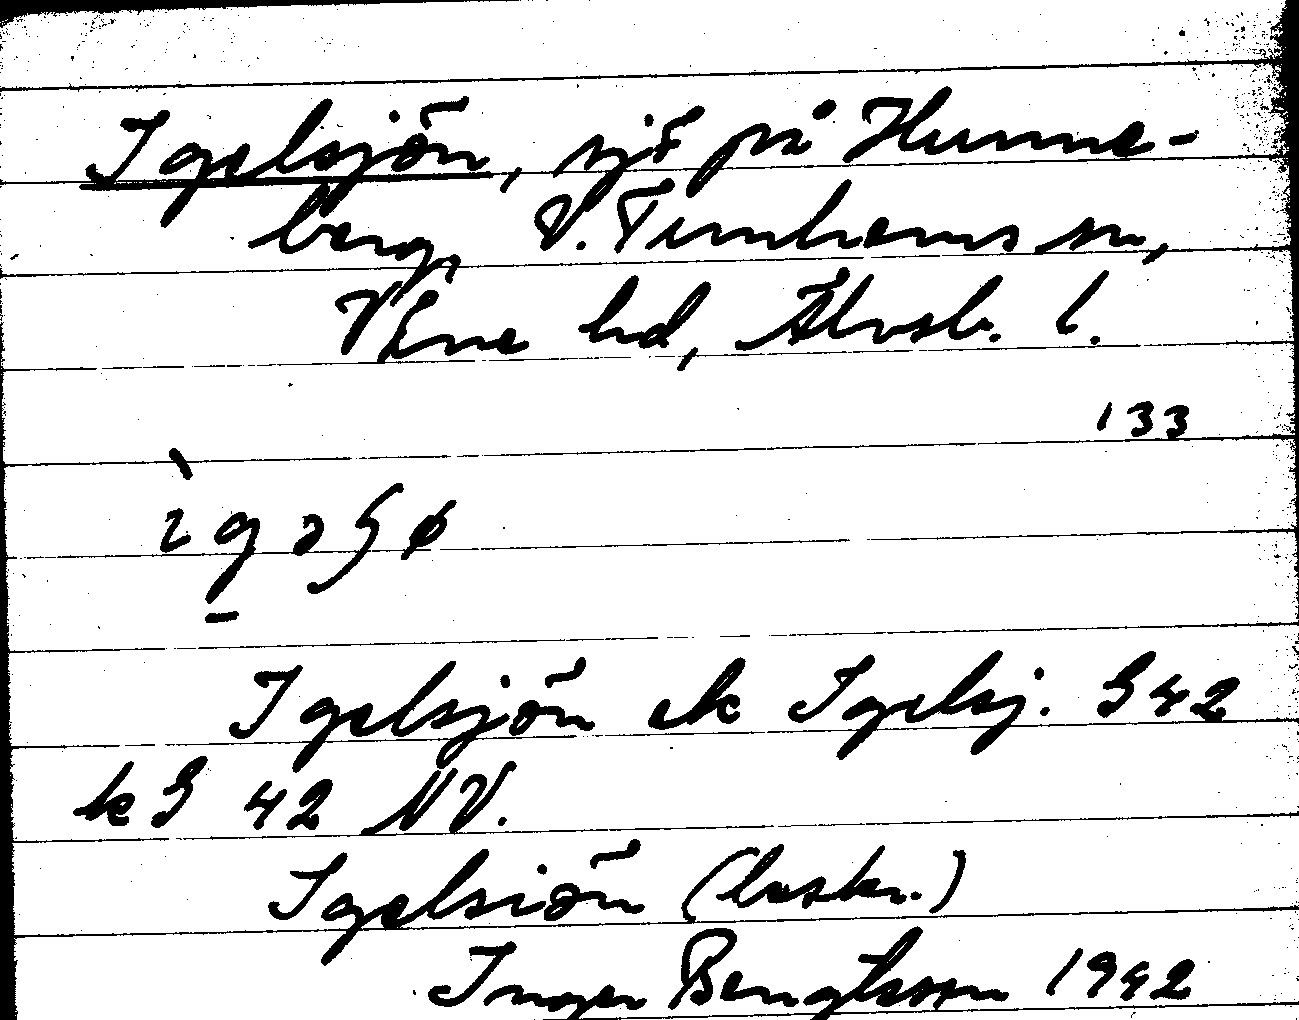 Igelsjön, sjö på Hunne-
berg, V. Tunhems sn,
Väne hd, Älvsb. l.
133
ìgəʃø
Igelsjön ek Igelsj. G 42
kG 42 NV.
Igelsiön (lastkr.)
Inger Bengtsson 1942